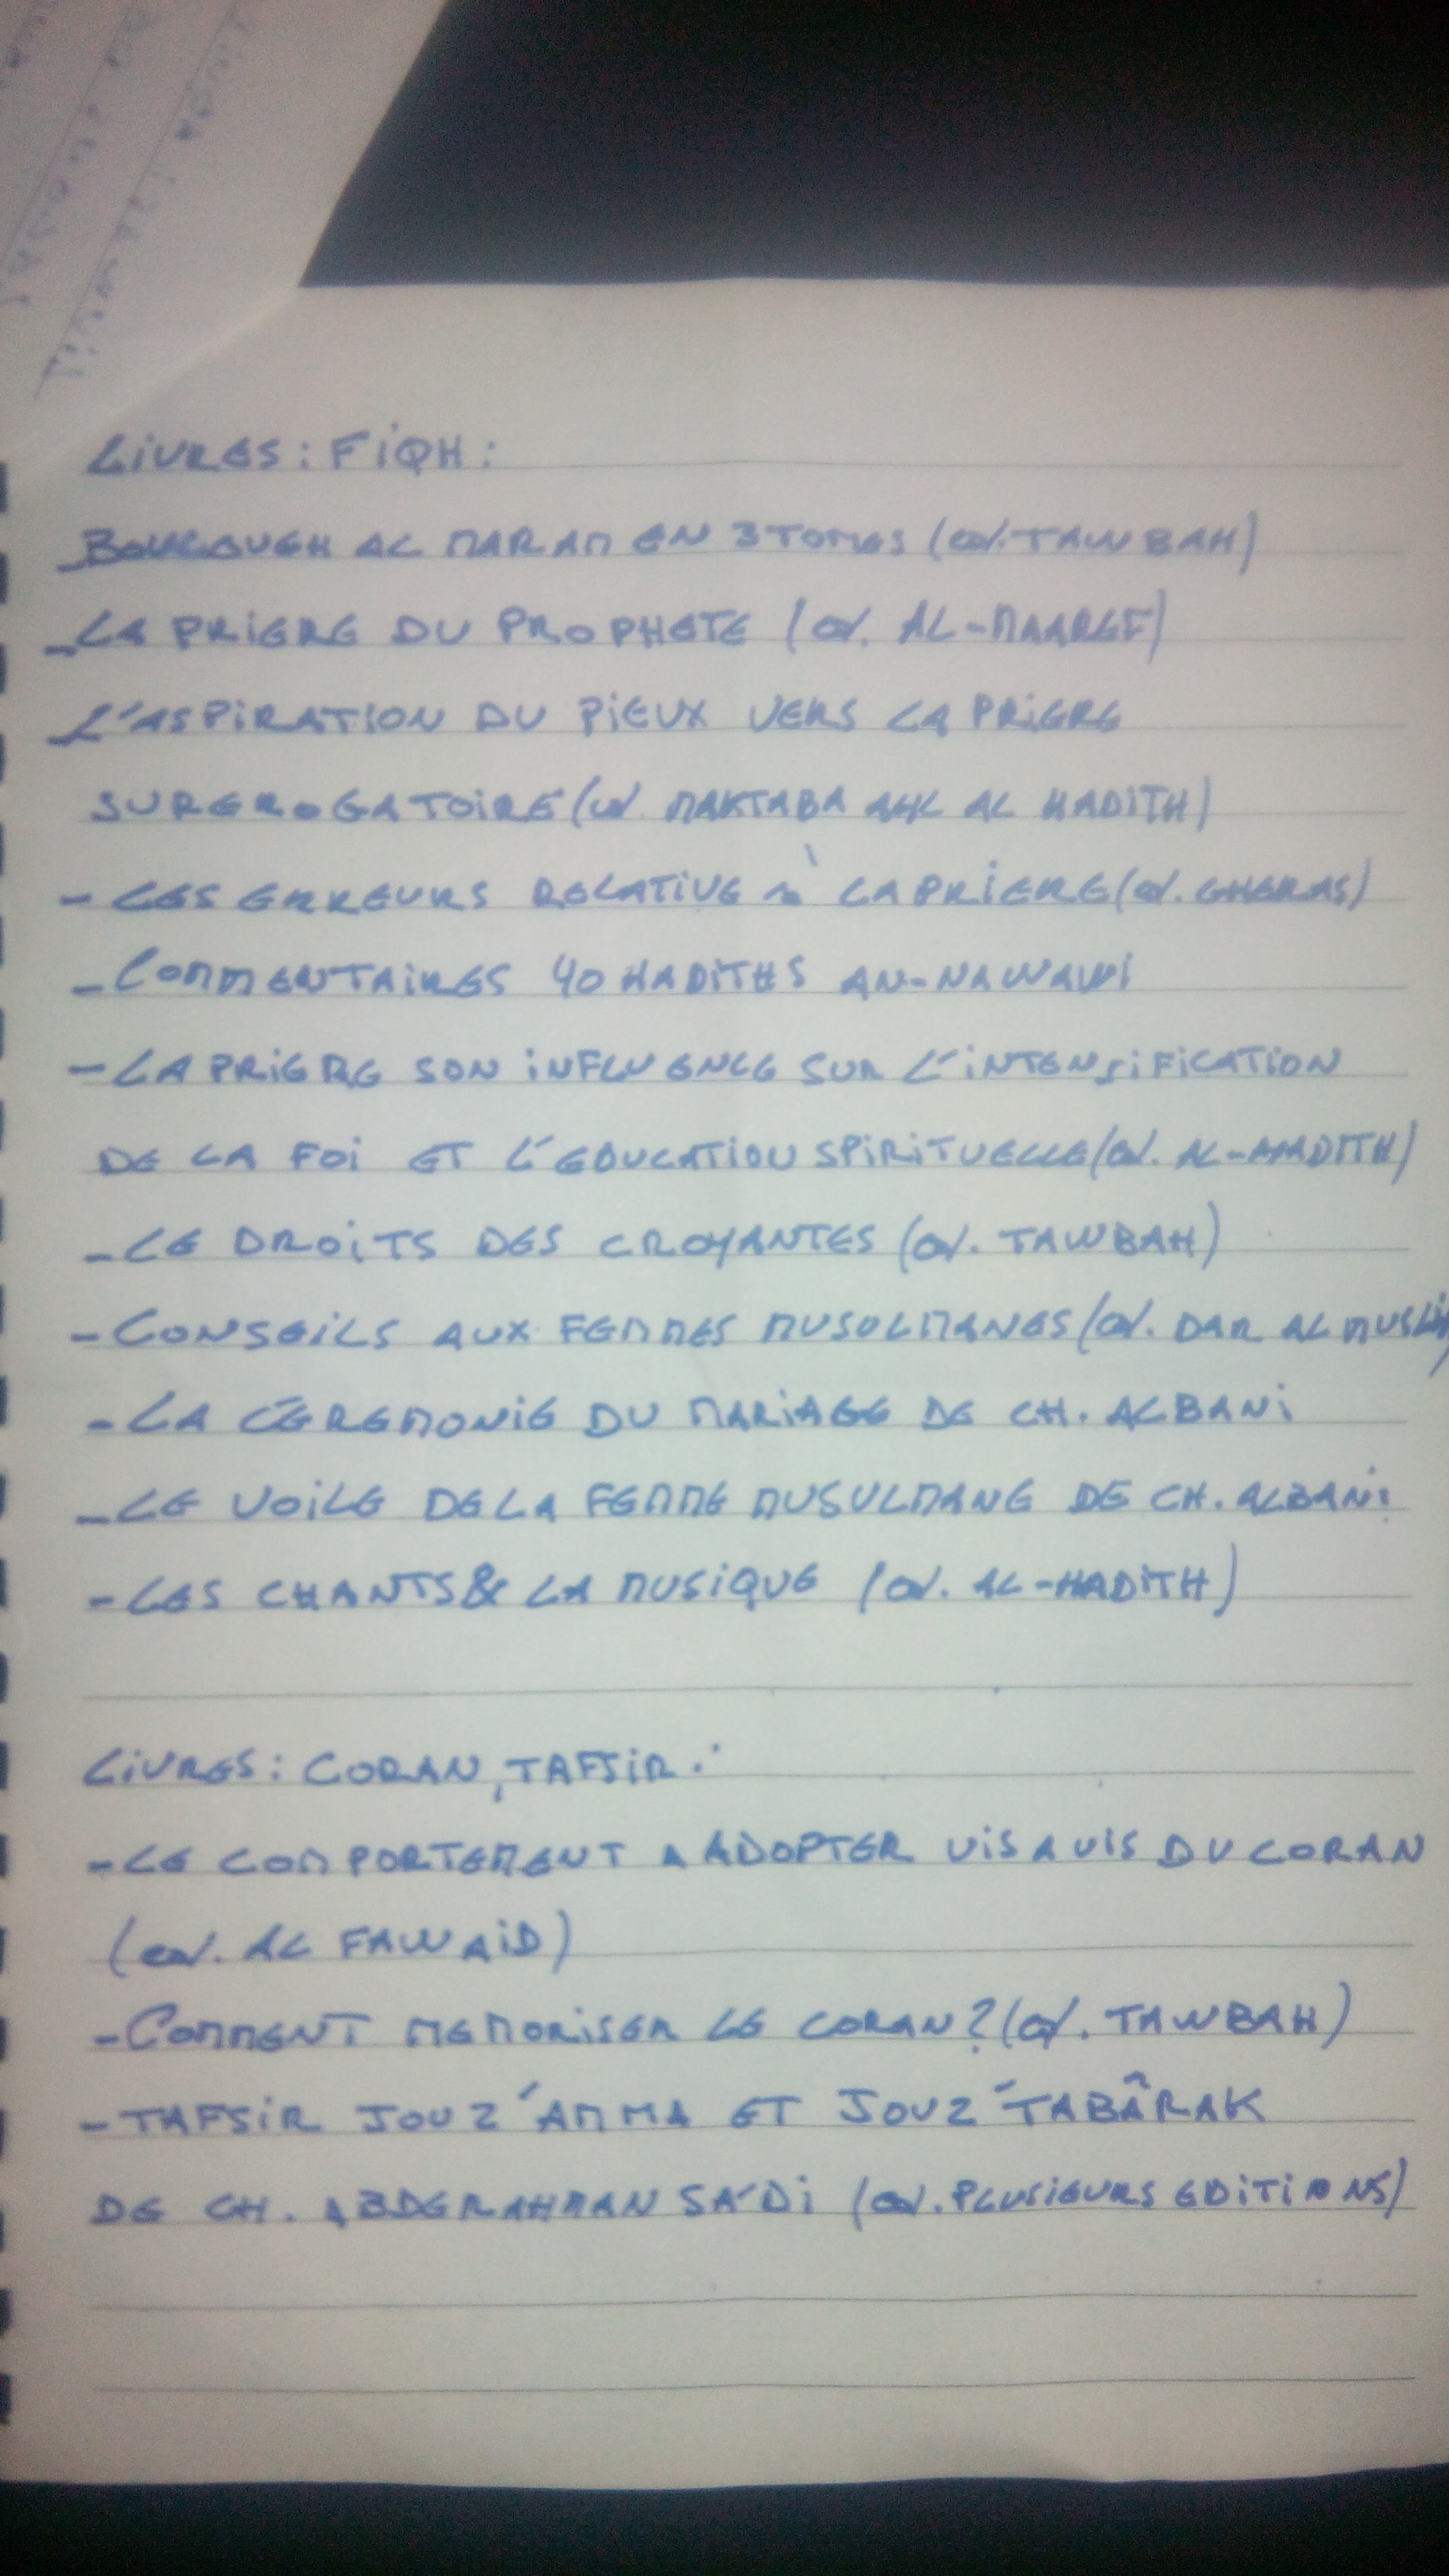 LIVRES : FIQH :
BOULOUGH AL MARAM EN 3 TOMES (éd. TAWBAH)
- LA PRIERE DU PROPHETE (éd. AL-MAAREF)
- L'ASPIRATION DU PIEUX VERS LA PRIERE
SUREROGATOIRE (éd. MAKTABA AHL AL HADITH)
- LES ERREURS RELATIVE à LA PRIERE (éd. GHERAS)
- COMMENTAIRES 40 HADITHS AN-NAWAWI
- LA PRIERE SON INFLUENCE SUR L'INTENSIFICATION
DE LA FOI ET L'EDUCATION SPIRITUELLE (éd. AL-HADITH)
- LE DROITS DES CROYANTES (éd. TAWBAH)
- CONSEILS AUX FEMMES MUSULMANES (éd. DAR AL MUSLIM)
- LA CÉREMONIE DU MARIAGE DE CH. ALBANI
- LE VOILE DE LA FEMME MUSULMANE DE CH. ALBANI
- LES CHANTS & LA MUSIQUE (éd. AL-HADITH)
LIVRES : CORAN, TAFSIR :
- LE COMPORTEMENT A ADOPTER VIS A VIS DU CORAN
(éd. AL FAWAID)
- COMMENT MEMORISER LE CORAN ? (éd. TAWBAH)
- TAFSIR JOUZ 'AMMA ET JOUZ 'TABÂRAK
DE CH. ABDERAHMAN SA'DI (éd. PLUSIEURS EDITIONS)